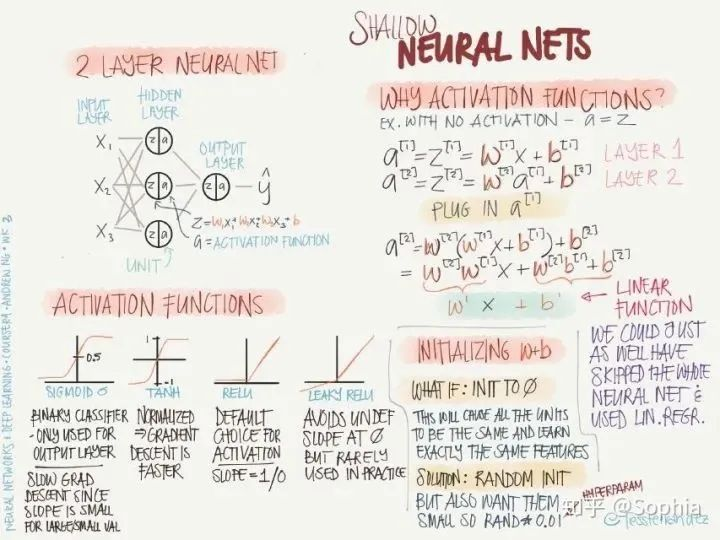 SHALLOW
NEURAL NETS
2 LAYER NEURAL NET
INPUT
LAYER
HIDDEN
LAYER
OUTPUT
LAYER
X₁
X₂
X₃
z a
z a
z a
z a
ŷ
Z = W₁X₁ + W₂X₂ W₃X₃ + b
a = ACTIVATION FUNCTION
UNIT
WHY ACTIVATION FUNCTIONS?
EX. WITH NO ACTIVATION - a = z
a[1] = Z[1] = W[1] X + b[1] LAYER 1
a[2] = Z[2] = W[2] a[1] + b[2] LAYER 2
PLUG IN a[1]
a[2] = W[2] (W[1] X + b[1]) + b[2]
= W[2] W[1] X + W[2] b[1] + b[2]
W' X + b'
LINEAR
FUNCTION
WE COULD JUST
AS WELL HAVE
SKIPPED THE WHOLE
NEURAL NET &
USED LIN. REGR.
ACTIVATION FUNCTIONS
0.5
SIGMOID σ
BINARY CLASSIFIER
- ONLY USED FOR
OUTPUT LAYER
SLOW GRAD
DESCENT SINCE
SLOPE IS SMALL
FOR LARGE/SMALL VAL
1
-1
TANH
NORMALIZED
⇒ GRADIENT
DESCENT IS
FASTER
RELU
DEFAULT
CHOICE FOR
ACTIVATION
SLOPE = 1/0
LEAKY RELU
AVOIDS UNDEF
SLOPE AT 0
BUT RARELY
USED IN PRACTICE
INITIALIZING W+b
WHAT IF: INIT TO 0
THIS WILL CAUSE ALL THE UNITS
TO BE THE SAME AND LEARN
EXACTLY THE SAME FEATURES
SOLUTION: RANDOM INIT
BUT ALSO WANT THEM
SMALL SO RAND * 0.01
HYPERPARAM
NEURAL NETWORKS & DEEP LEARNING • COURSERA • ANDREW NG • WK 3
知乎 @Sophia
@jessfernandez